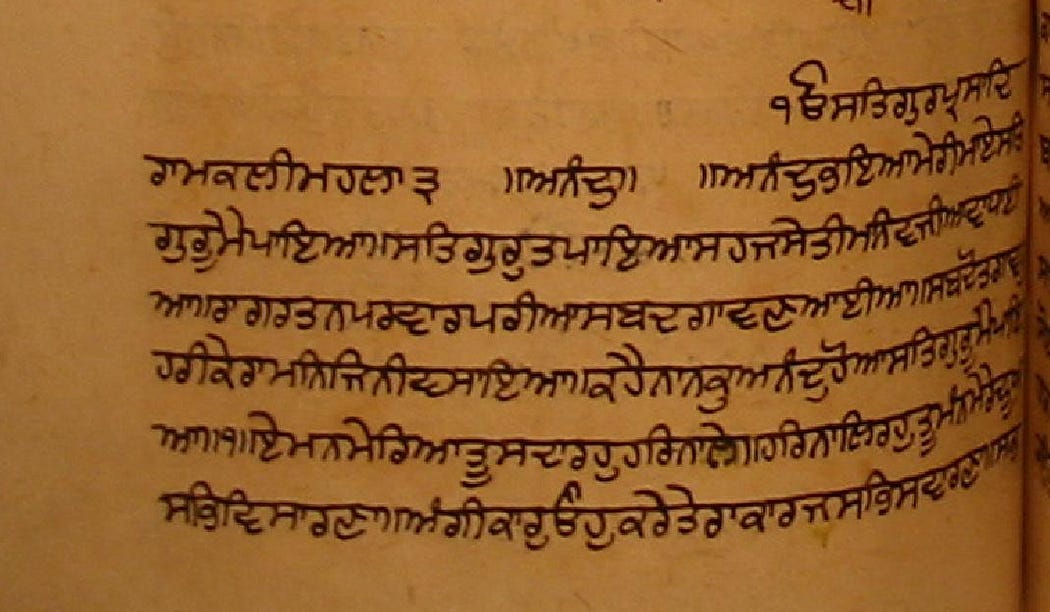 ੧ਓ ਸਤਿਗੁਰਪ੍ਰਸਾਦਿ
ਰਾਮਕਲੀਮਹਲਾ੩ ॥ਅਨੰਦੁ॥ ॥ਅਨੰਦੁਭੁਇਆਮੇਰੀਮਾਏਸਤਿ
ਗੁਰੂਮੈਪਾਇਆ॥ਸਤਿਗੁਰੁਤਪਾਇਆਸਹਜਸੇਤੀਮਨਿਵਜੀਅਵਾਧਾਈ
ਆ॥ਰਾਗਰਤਨਪਰਵਾਰਪਰੀਆਸਬਦਗਾਵਣਆਈਆ॥ਸਬਦੋਤਗਾਵਹੁ
ਹਰੀਕੇਰਾਮਨਿਜਿਨੀਵਸਾਇਆ॥ਕਹੈਨਾਨਕੁਅਨੰਦੁਹੋਆਸਤਿਗੁਰੂਮੈਪਾਇ
ਆ॥੧॥ਏਮਨਮੇਰਿਆਤੂਸਦਾਰਹੁਹਰਿਨਾਲੇ॥ਹਰਿਨਾਲਿਰਹੁਤੂਮੰਨਮੇਰੇਦੂਖ
ਸਭਿਵਿਸਾਰਣਾ॥ਅੰਗੀਕਾਰੁਓਹੁਕਰੇਤੇਰਾਕਾਰਜਸਭਿਸਵਾਰਣਾ॥ਸਭ